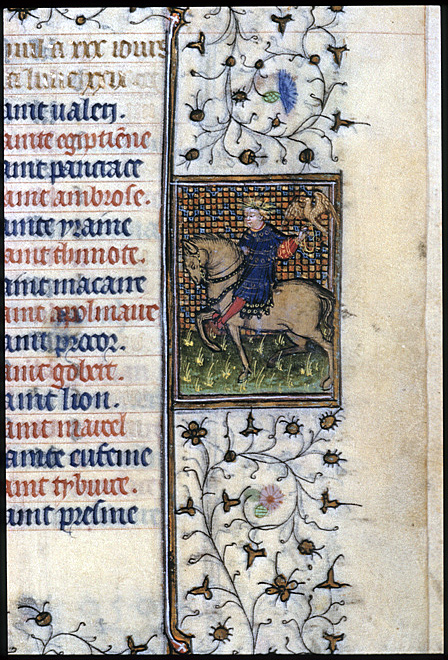 uril a xxx iours
aint ualeri.
ainte egiptiēne
aint panciace
aint ambrose.
ainte yraine
aint thimote.
aint macaire
aint apolinaire
aint procor.
aint gobert.
aint lion.
aint marcel
ainte eufeme
aint tyburce.
aint presme